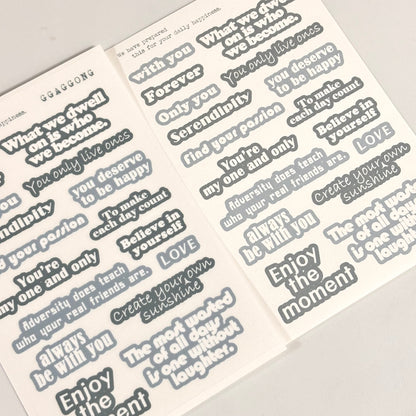 GGAGGONG
happiness.
What we dwell
on is who
we become.
You only live oncs
you deserve
to be happy
To make
each day count
Believe in
yourself
LOVE
your passion
You're
my one and only
Adversity does teach
who your real friends are.
Create your own
sunshine
always
be with you
The most wasted
of all days
is one without
laughter.
Enjoy
the
moment
we have prepared
this for your daily happiness.
with you
Forever
Only you
Serendipity
find your passion
What we dwell
on is who
we become.
You only live oncs
you deserve
to be happy
To make
each day count
Believe in
yourself
LOVE
You're
my one and only
Adversity does teach
who your real friends are.
Create your own
sunshine
always
be with you
The most wasted
of all days
is one without
laughter.
Enjoy
the
moment